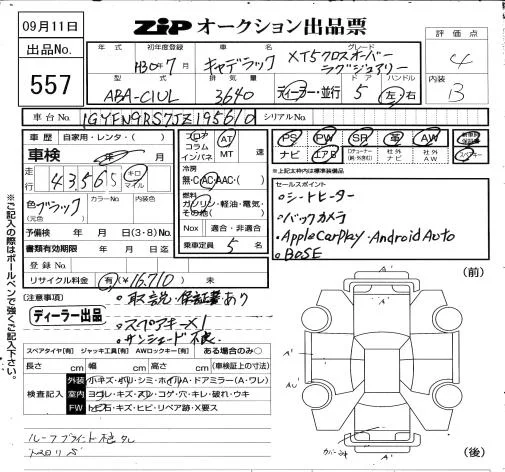 09月11日
ZIP オークション出品票
出品No.
557
年式 初年度登録 車名 グレード
H30年7月 キャデラック XT5クロスオーバー
ラグジュアリー
評価点
4
内装
B
型式 排気量 ドア ハンドル
ABA-C1UL 3640 ディーラー・並行 5 左・右
車台No. 1GYFN9RS7JZ195610 シリアルNo.
車歴 自家用・レンタ( )
車検 年 月
走行 43,565 キロ マイル
色 ブラック カラーNo. 内装色
(元色)
予備検 年 月 日(3・8)No.
書類有効期限 年 月 日迄
登録No.
リサイクル料金 有(¥16,710) 未
フロア
コラム
インパネ
AT
MT 速
冷房
無・C・AC・AAC・( )
燃料
ガソリン・軽油・電気・
その他( )
Nox 適合・非適合
乗車定員 5 名
PS PW SR 革 AW 新車時保証書
ナビ エアB 社外ナビ 社外AW
※上記太枠内は標準装備品
セールスポイント
・シートヒーター
・バックカメラ
・Apple CarPlay・Android Auto
・BOSE
※ご記入の際はボールペンで強くご記入下さい。
(注意事項)
ディーラー出品
・取説・保証書あり
・スペアキー×1
・サンシェード不良
スペアタイヤ[有] ジャッキ工具[有] AWロックキー[有] ある場合のみ○
長さ cm 幅 cm 高さ cm (車検証上の寸法)
検査記入
外装 小キズ・ポリ・シミ・ホイルA・ドアミラー(A・ワレ)
室内 ヨゴレ・キズ・スレ・コゲ・穴・キレ・破れ・ウキ
FW トビ石・キズ・ヒビ・リペア跡・X要ス
(前)
A'
A'
(後)